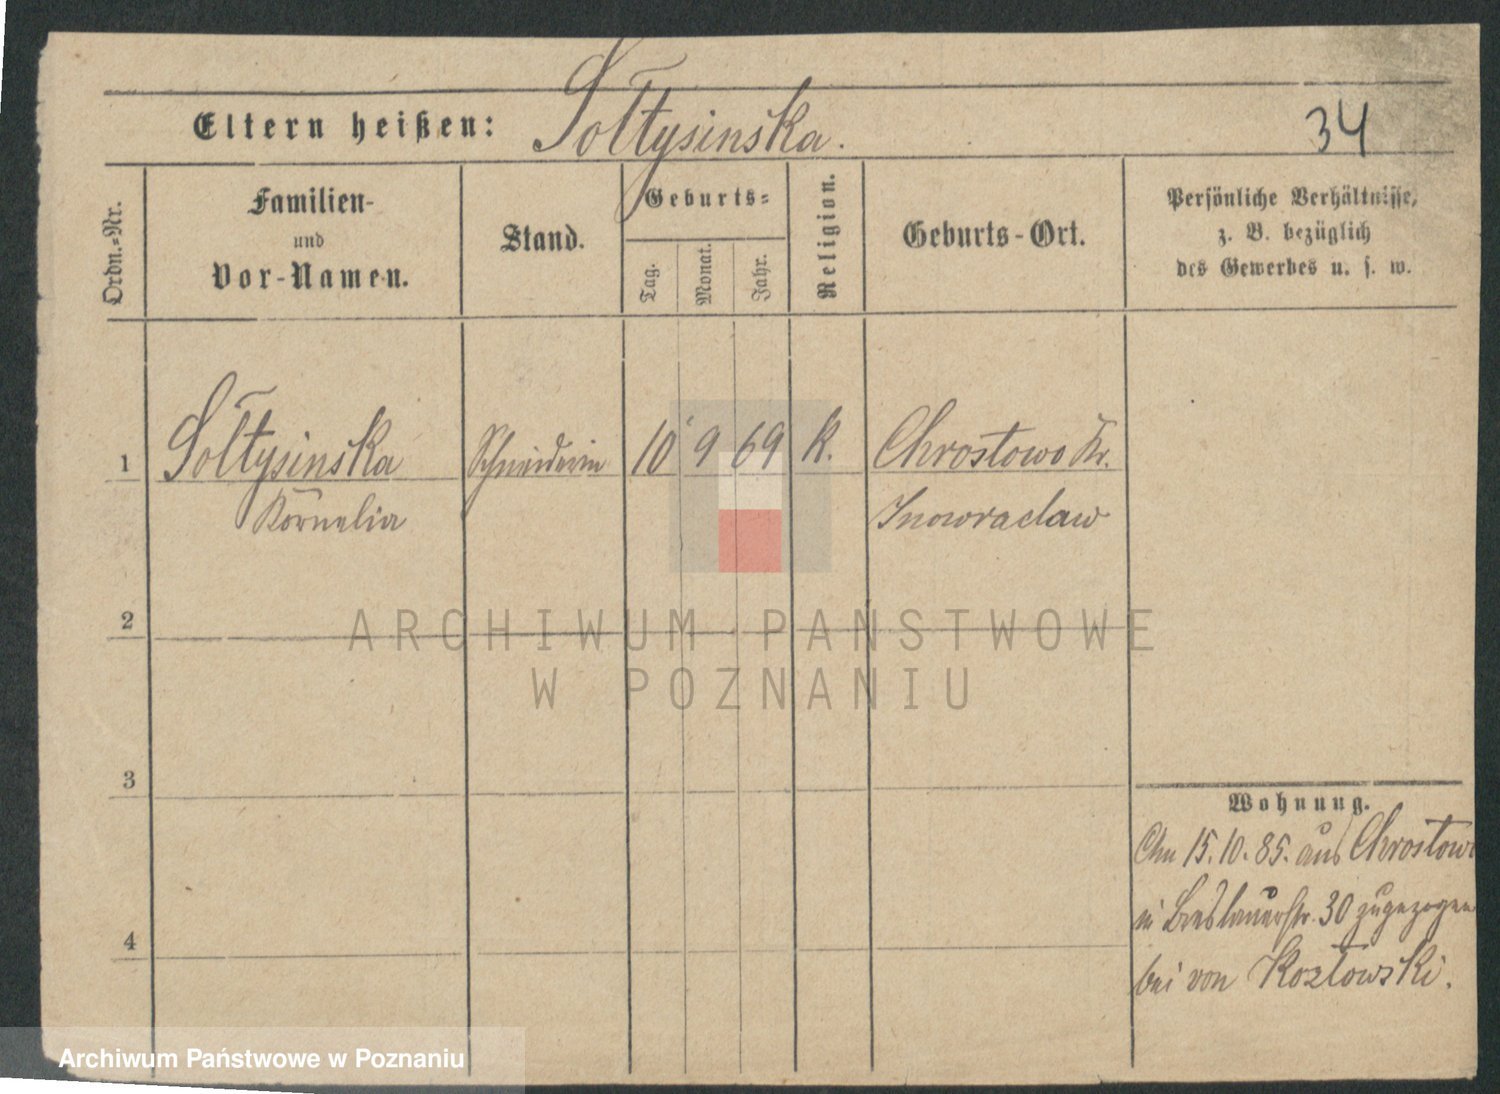 Eltern heißen: Sołtysinska.
34
Ordn.-Nr.
Familien-
und
Vor-Namen.
Stand.
Geburts-
Tag.
Monat.
Jahr.
Religion.
Geburts-Ort.
Persönliche Verhältnisse,
z. B. bezüglich
des Gewerbes u. s. w.
1 Sołtysinska Schneiderin 10 9 69 k. Chrostowo Kr.
Kornelia Inowraclaw
2
3
4
Wohnung.
15.10.85. aus Chrostowo
in Breslauerstr. 30 zugezogen
bei von Kozłowski.
ARCHIWUM PAŃSTWOWE
W POZNANIU
Archiwum Państwowe w Poznaniu